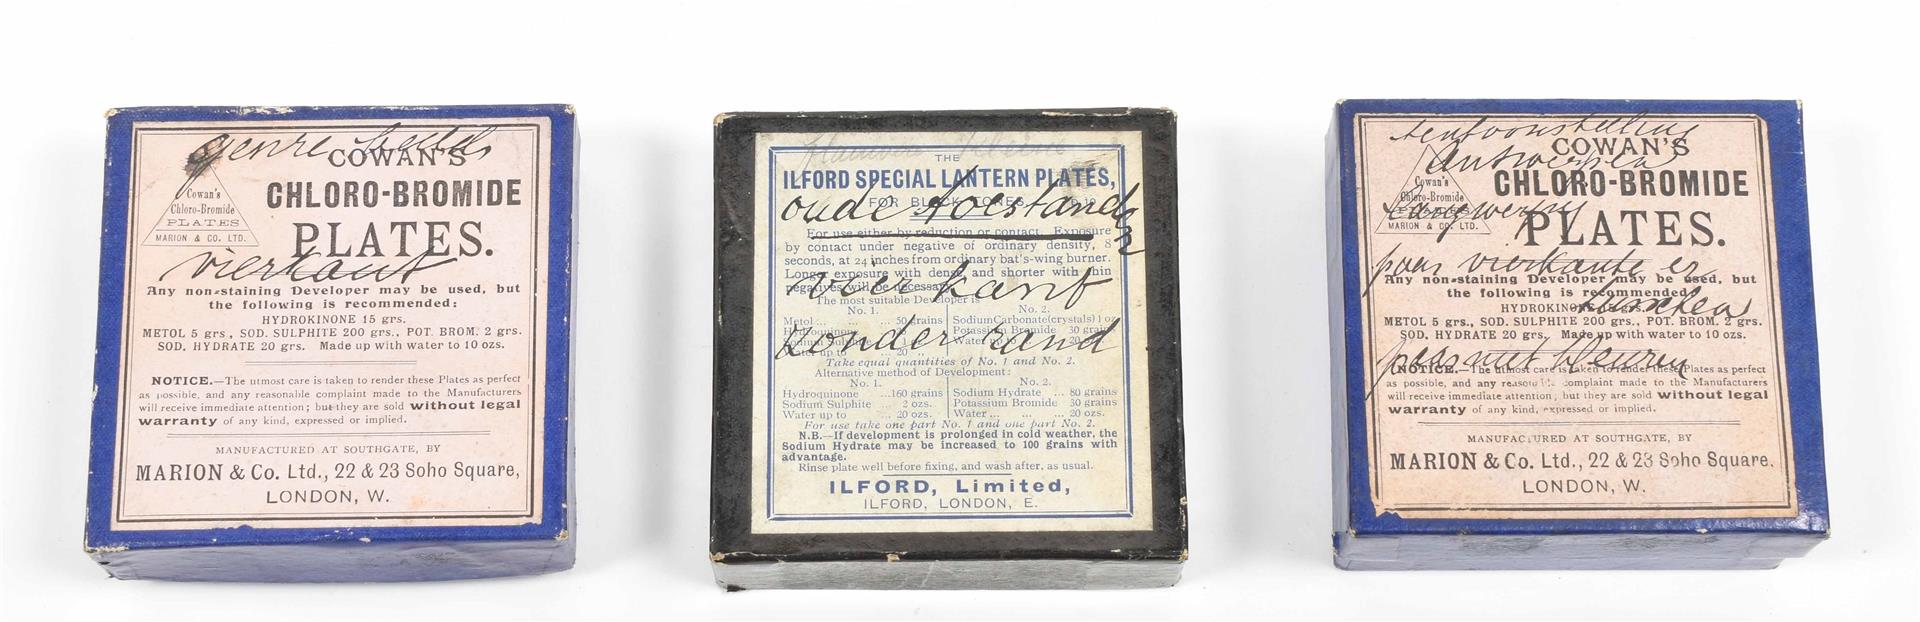 genre
COWAN'S
CHLORO-BROMIDE
PLATES.
Cowan's
Chloro-Bromide
PLATES
MARION & CO. LTD.
vierkant
Any non-staining Developer may be used, but
the following is recommended:
HYDROKINONE 15 grs.
METOL 5 grs., SOD. SULPHITE 200 grs., POT. BROM. 2 grs.
SOD. HYDRATE 20 grs. Made up with water to 10 ozs.
NOTICE.—The utmost care is taken to render these Plates as perfect
as possible, and any reasonable complaint made to the Manufacturers
will receive immediate attention; but they are sold without legal
warranty of any kind, expressed or implied.
MANUFACTURED AT SOUTHGATE, BY
MARION & Co. Ltd., 22 & 23 Soho Square,
LONDON, W.
THE
ILFORD SPECIAL LANTERN PLATES,
FOR BLACK TONES.
oude toestand
For use either by reduction or contact. Exposure
by contact under negative of ordinary density, 8
seconds, at 24 inches from ordinary bat's-wing burner.
Longer exposure with dense, and shorter with thin
negatives will be necessary.
vierkant
The most suitable Developer is
No. 1. No. 2.
Metol ... 50 grains Sodium Carbonate (crystals) 1 oz
Hydroquinone Potassium Bromide 30 grains
Sodium Sulphite Water up to 20
zonder rand
Water up to ... 20
Take equal quantities of No. 1 and No. 2.
Alternative method of Development:
No. 1. No. 2.
Hydroquinone ...160 grains Sodium Hydrate ... 80 grains
Sodium Sulphite ... 2 ozs. Potassium Bromide 30 grains
Water up to ... 20 ozs. Water ... ... ... 20 ozs.
For use take one part No. 1 and one part No. 2.
N.B.—If development is prolonged in cold weather, the
Sodium Hydrate may be increased to 100 grains with
advantage.
Rinse plate well before fixing, and wash after, as usual.
ILFORD, Limited,
ILFORD, LONDON, E.
tentoonstelling
COWAN'S
Antwerpen
CHLORO-BROMIDE
PLATES.
Cowan's
Chloro-Bromide
MARION & CO. LTD.
vierkante
Any non-staining Developer may be used, but
the following is recommended
HYDROKINONE 15 grs.
METOL 5 grs., SOD. SULPHITE 200 grs., POT. BROM. 2 grs.
SOD. HYDRATE 20 grs. Made up with water to 10 ozs.
met kleuren
NOTICE.—The utmost care is taken to render these Plates as perfect
as possible, and any reasonable complaint made to the Manufacturers
will receive immediate attention; but they are sold without legal
warranty of any kind, expressed or implied.
MANUFACTURED AT SOUTHGATE, BY
MARION & Co. Ltd., 22 & 23 Soho Square.
LONDON, W.